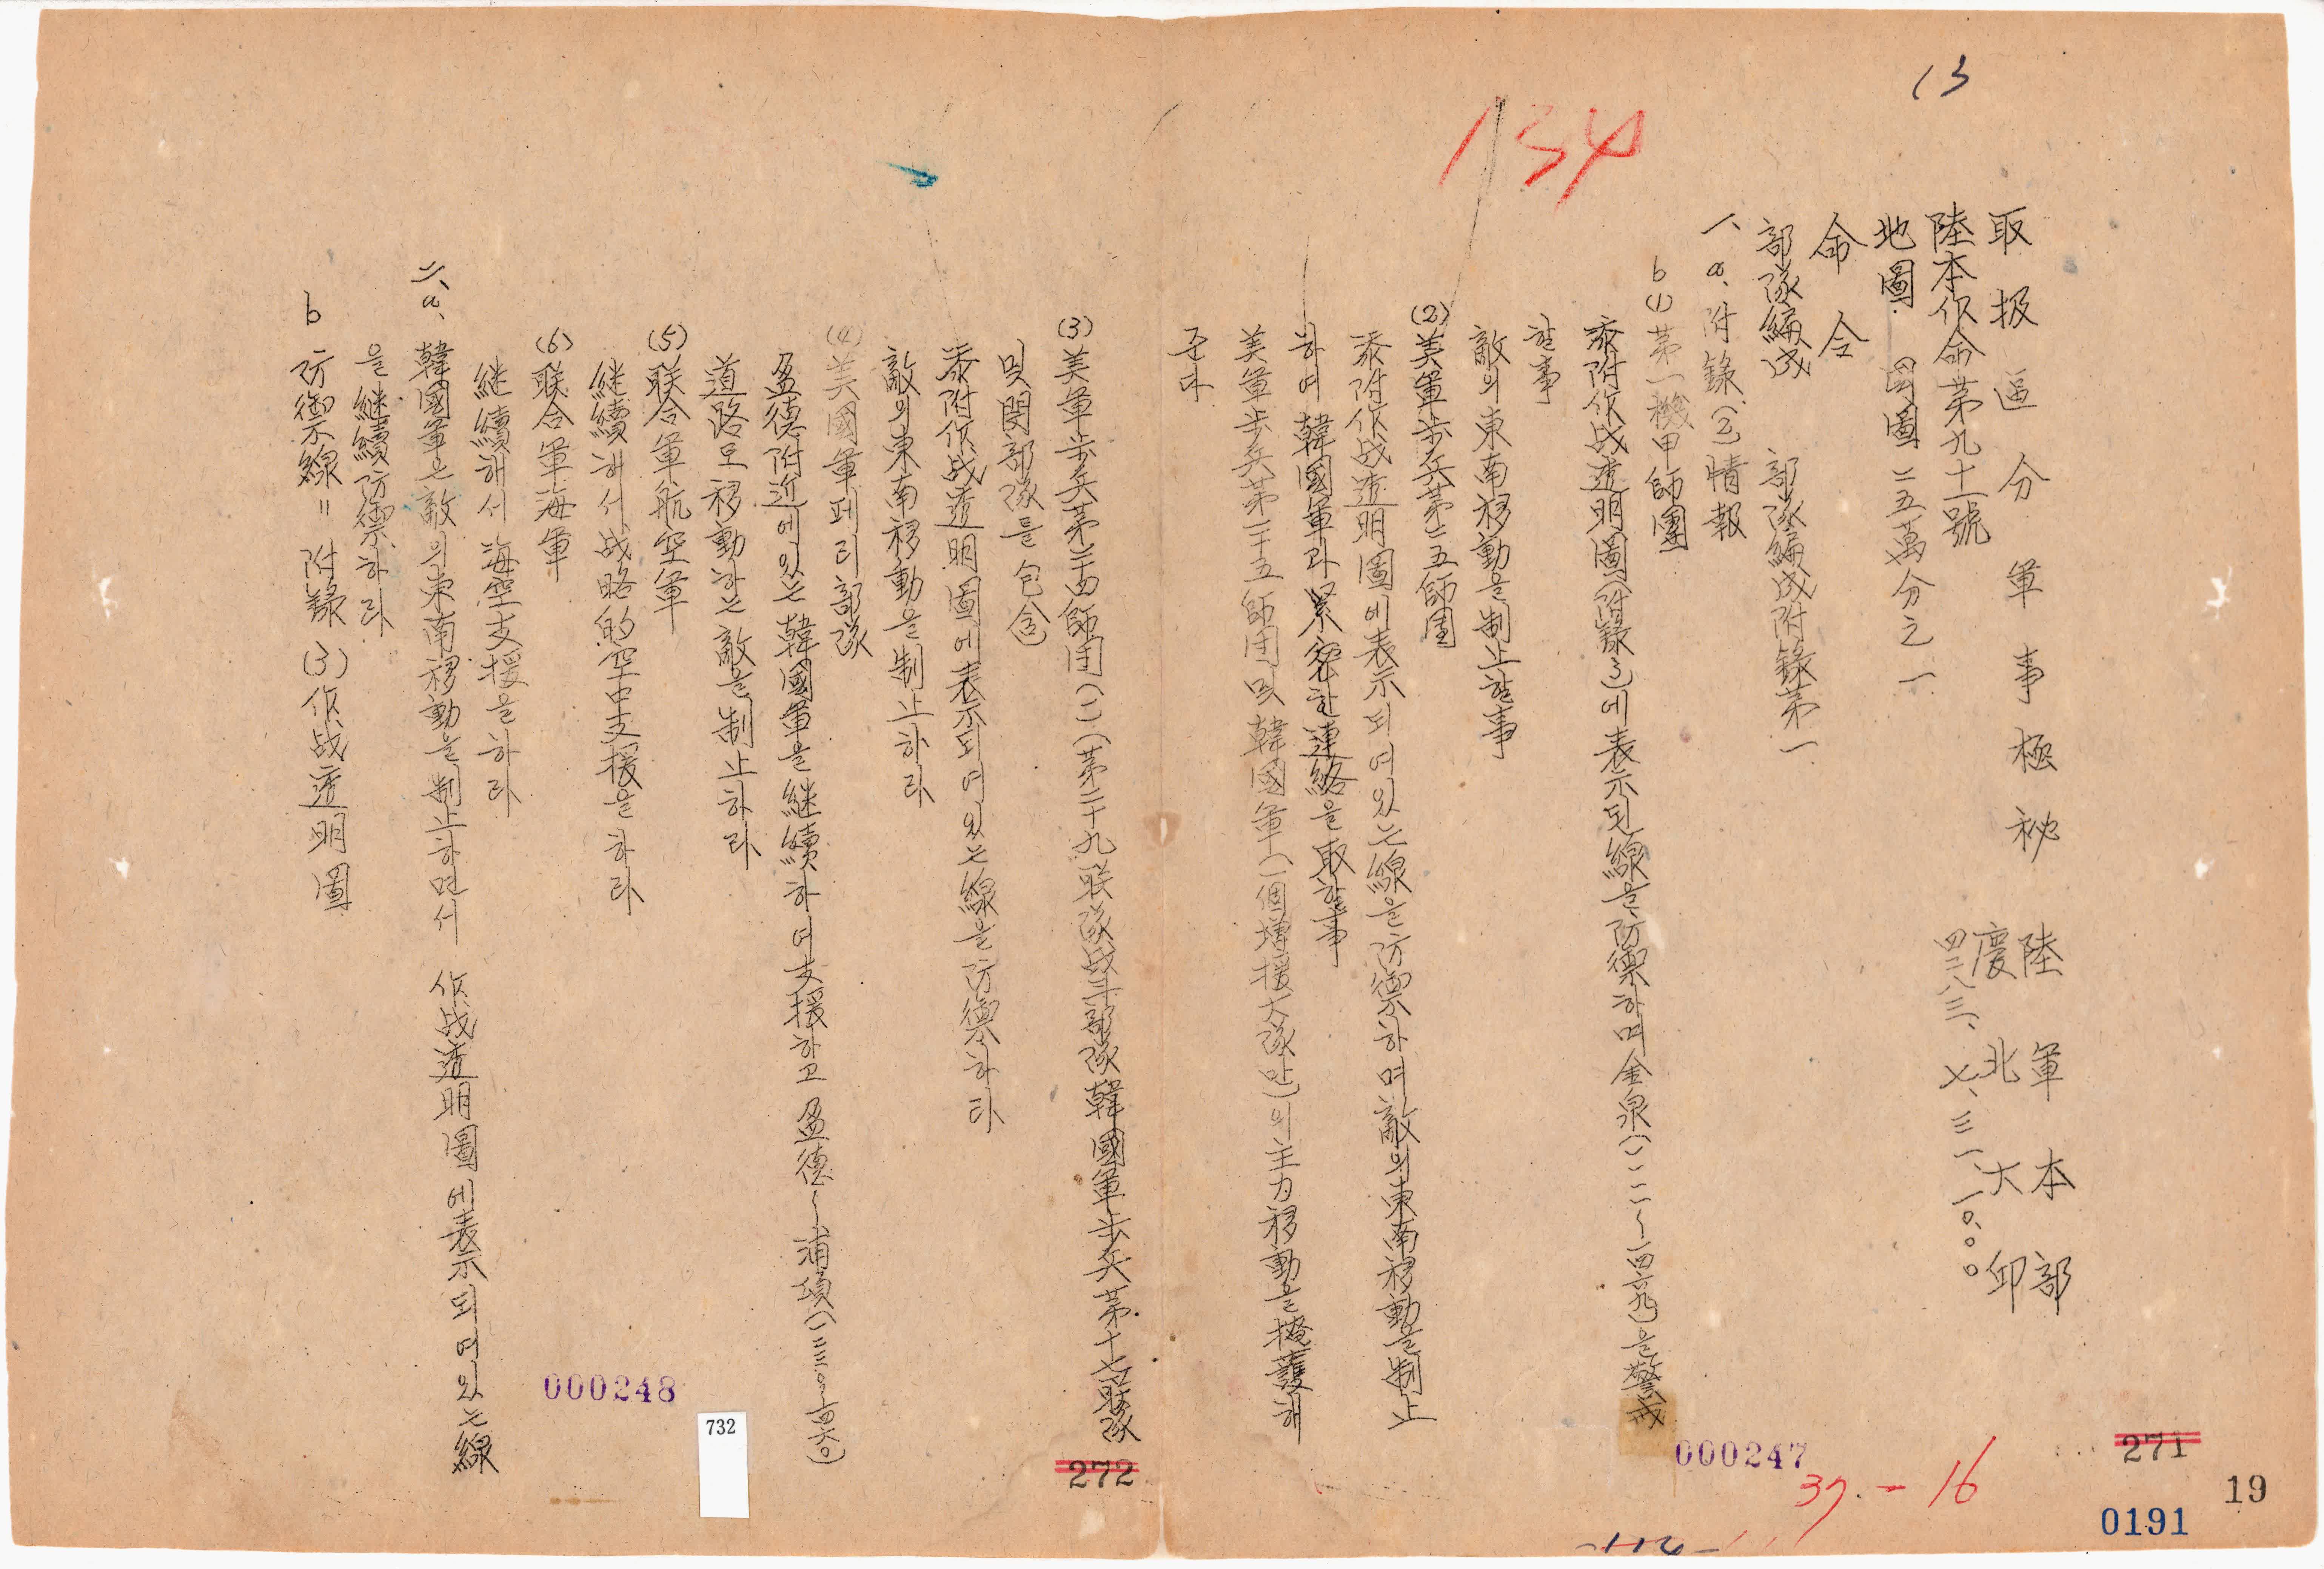 13
134
取扱區分 軍事極秘
陸軍本部
慶北大邱
四二八三、七、三一、一0、00
陸本作命第九十一號
地圖 韓國圖二五萬分之一
命令
部隊編成 部隊編成附錄第一
一、a、附錄(二)情報
b(1)第一機甲師團
添附作战透明圖(附錄3)에表示된線을防禦하며金泉(一一二一~一四六九)을警戒
할事
敵의東南移動을制止할事
(2)美軍步兵第二五師団
添附作战透明圖에表示되여있는線을防禦하며敵의東南移動을制止
하여韓國軍과緊密한連絡을取할事
美軍步兵第二十五師団및韓國軍(一個增援大隊만)의主力移動을掩護해
준다
(3)美軍步兵第二十四師団(一)(第二十九联隊战斗部隊韓國軍步兵第十七联隊
및関部隊를包含)
添附作战透明圖에表示되여있는線을防禦하라
敵의東南移動을制止하라
(4)美國軍페리部隊
盈德附近에있는韓國軍을継續하여支援하고盈德~浦項(一三三0~一四六0)
道路로移動하는敵을制止하라
(5)联合軍航空軍
継續해서战略的空中支援을하라
(6)联合軍海軍
継續해서海空支援을하라
二、a、韓國軍은敵의東南移動을制止하면서 作战透明圖에表示되여있는線
을継續防禦하라
b 防禦線=附錄(3)作战透明圖
000248
732
272
000247
37.-16
271
19
0191